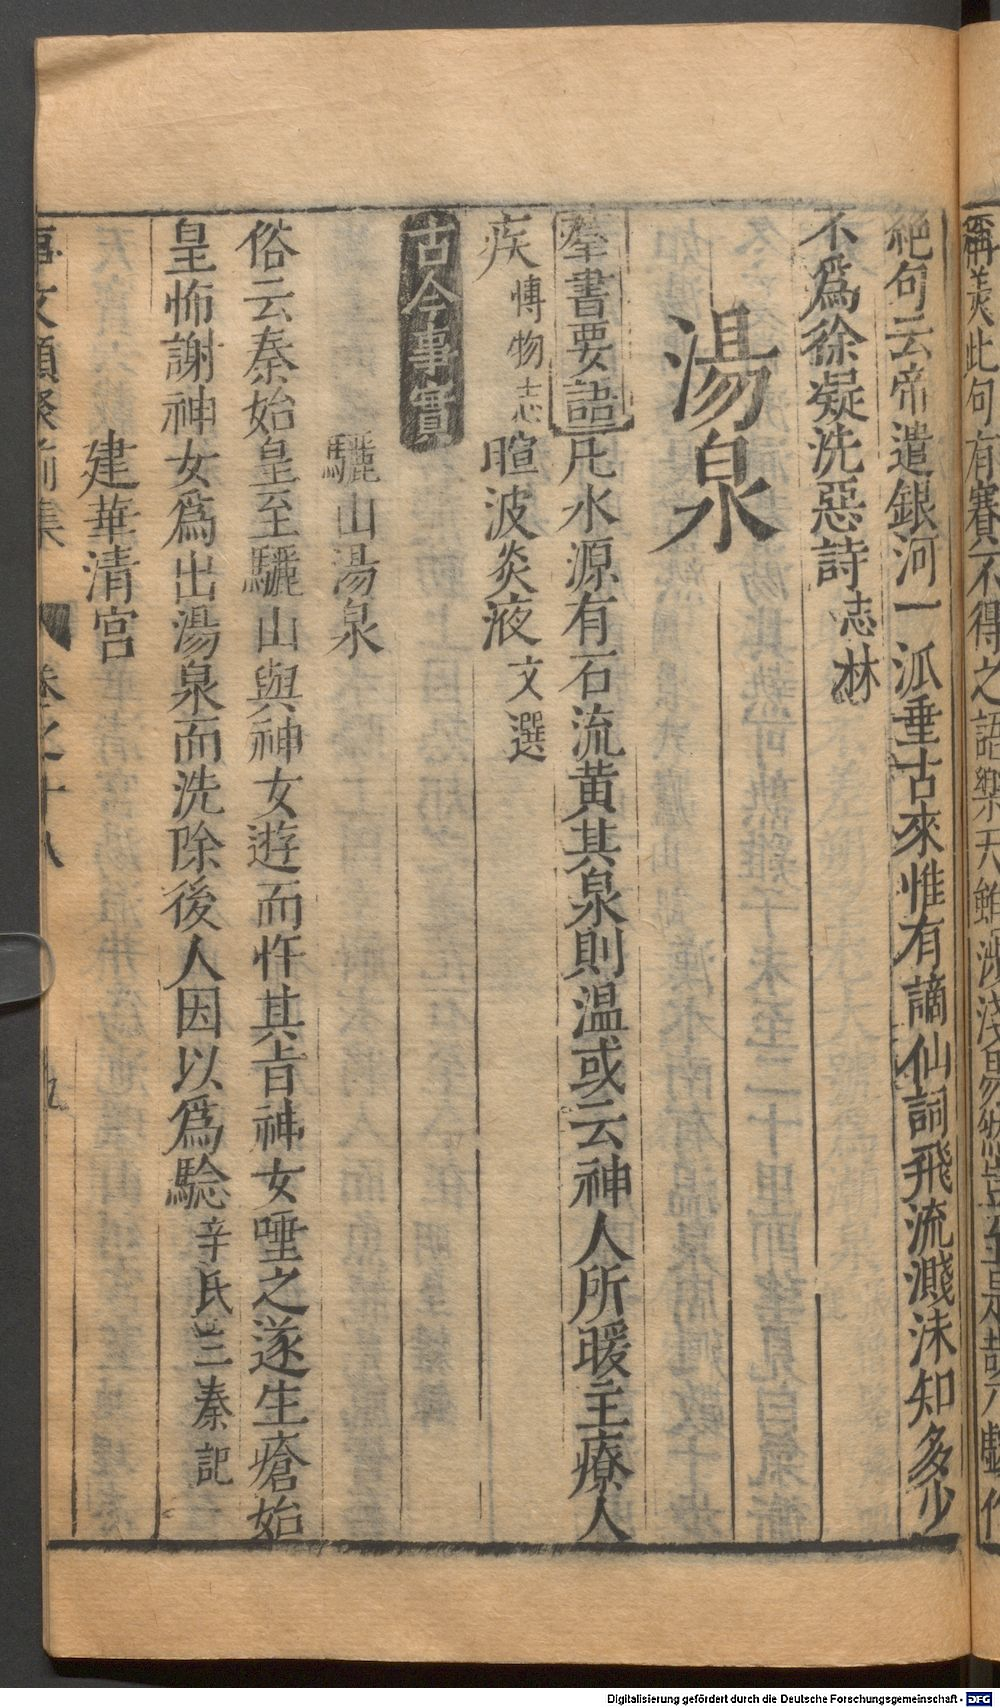 稱羨此句有賽不得之語樂天雖涉淺易然豈至是哉乃戲作
絕句云帝遣銀河一泒垂古來惟有謫仙詞飛流濺沫知多少
不爲徐凝洗惡詩志林
湯泉
羣書要語凡水源有石流黄其泉則温或云神人所暖主療人
疾博物志 暄波炎液文選
古今事實
驪山湯泉
俗云秦始皇至驪山與神女遊而忤其旨神女唾之遂生瘡始
皇怖謝神女爲出湯泉而洗除後人因以爲驗辛氏三秦記
建華清宫
事文類聚前集 卷之十八 九
Digitalisierung gefördert durch die Deutsche Forschungsgemeinschaft - DFG